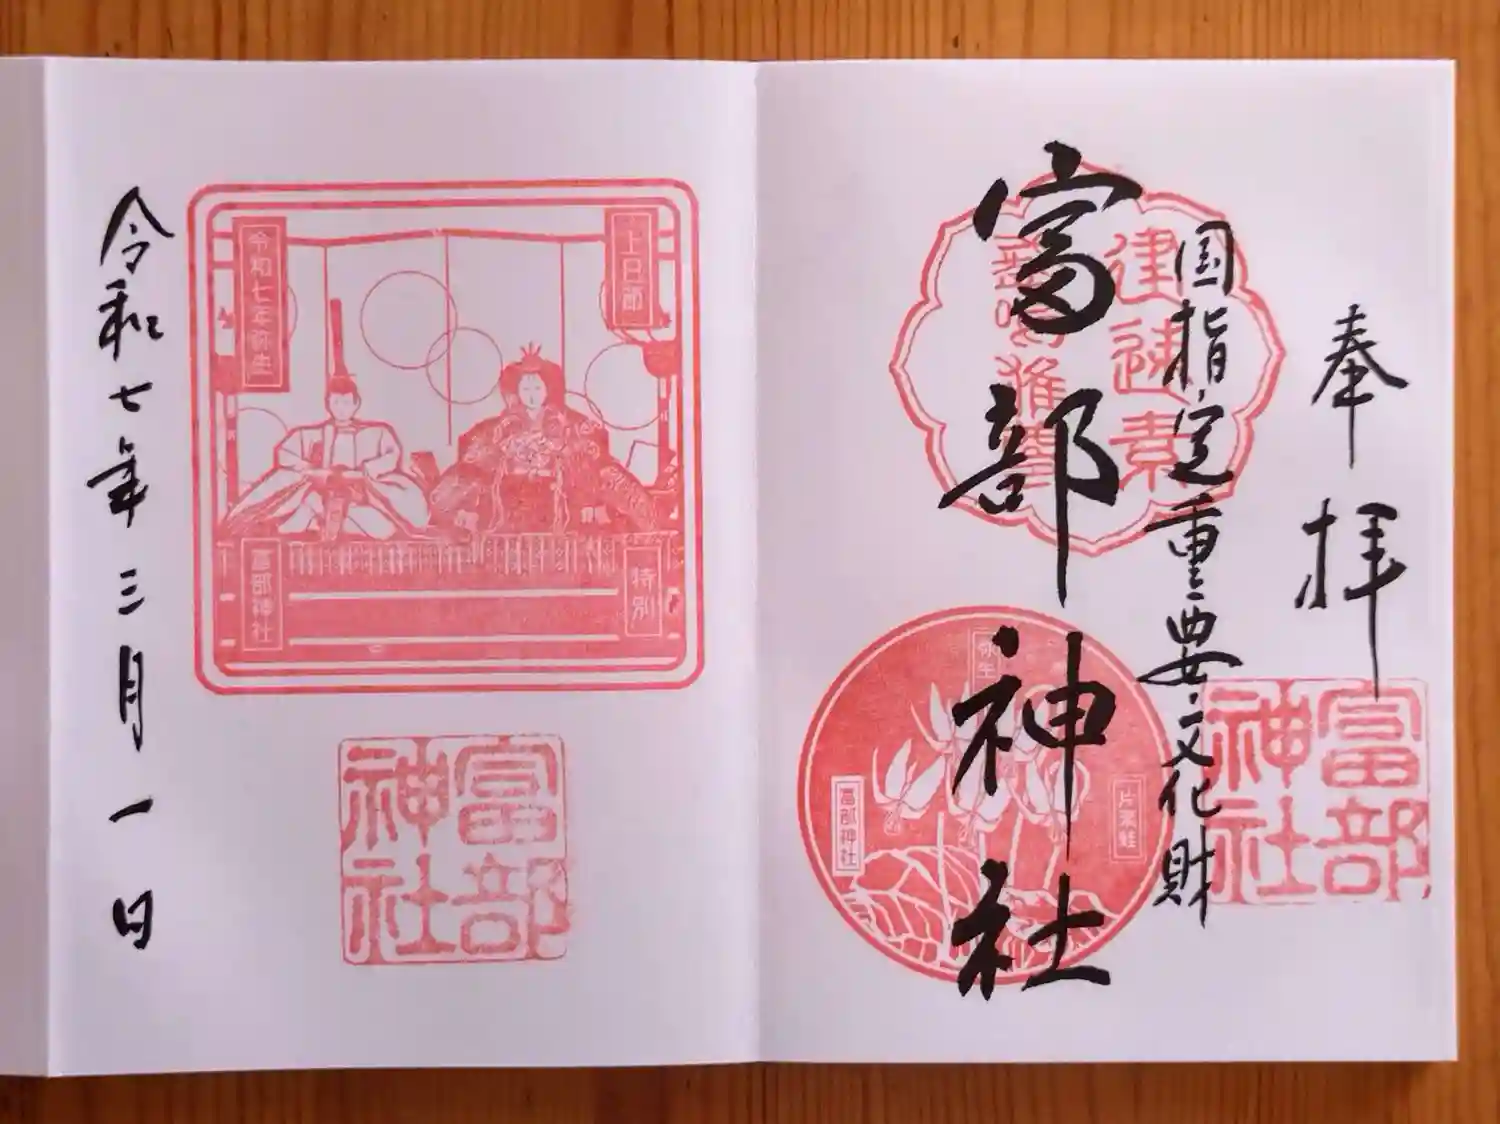 奉拝
国指定重要文化財
富部神社
富部神社
富部神社
弥生
片栗
上巳節
特別
令和七年弥生
富部神社
富部神社
令和七年三月一日